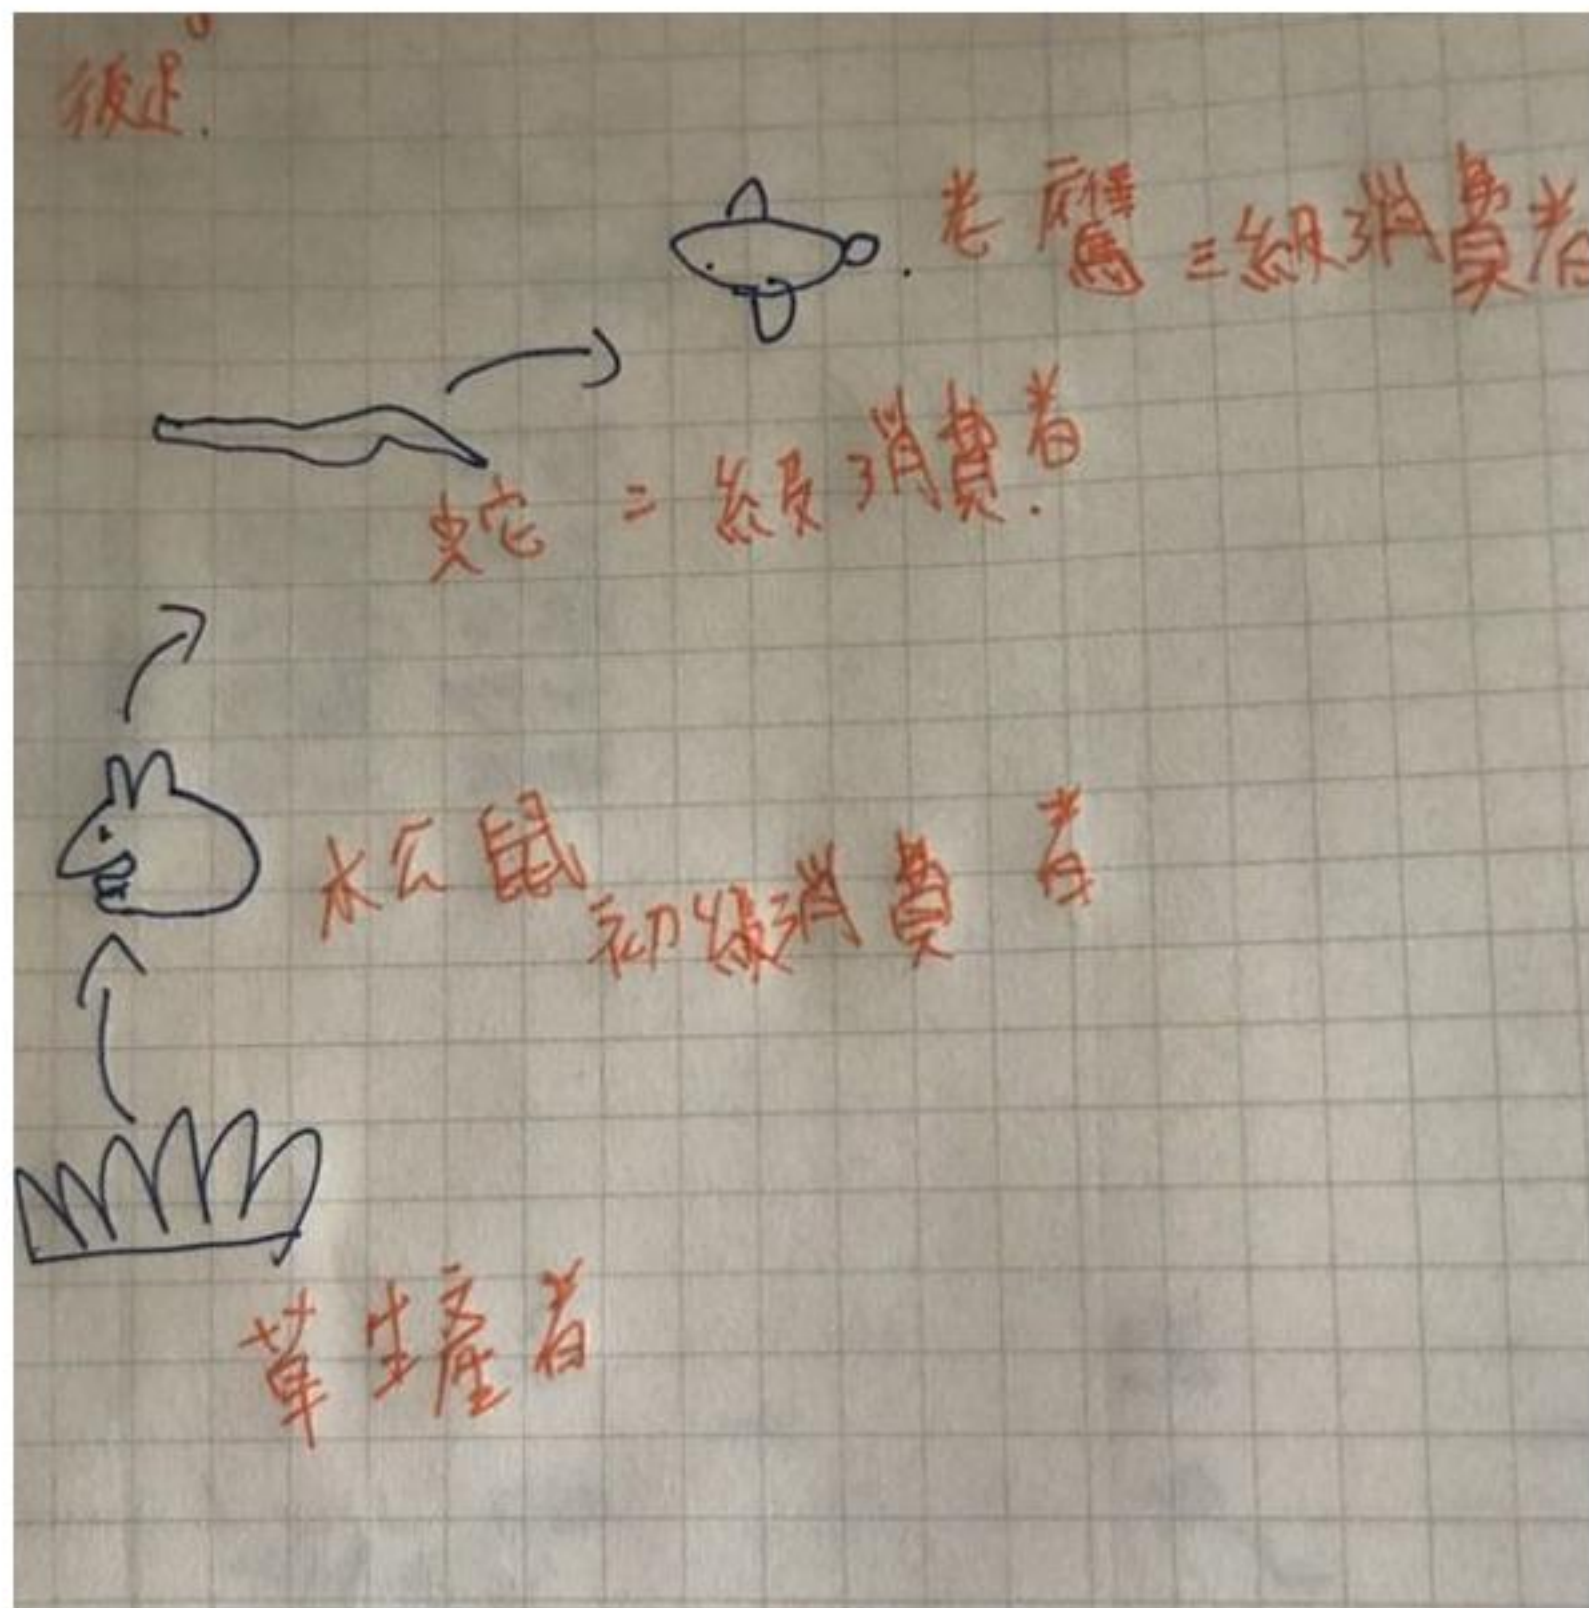 後是.
老鷹三級消費者
蛇二級消費者.
松鼠初級消費者
草生產者